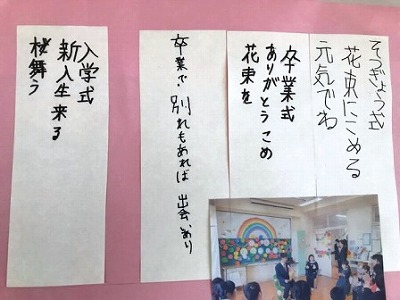 そつぎょう式
花束にこめる
元気でね
卒業式
ありがとうこめ
花束を
卒業で 別れもあれば 出会あり
入学式
新入生来る
桜舞う